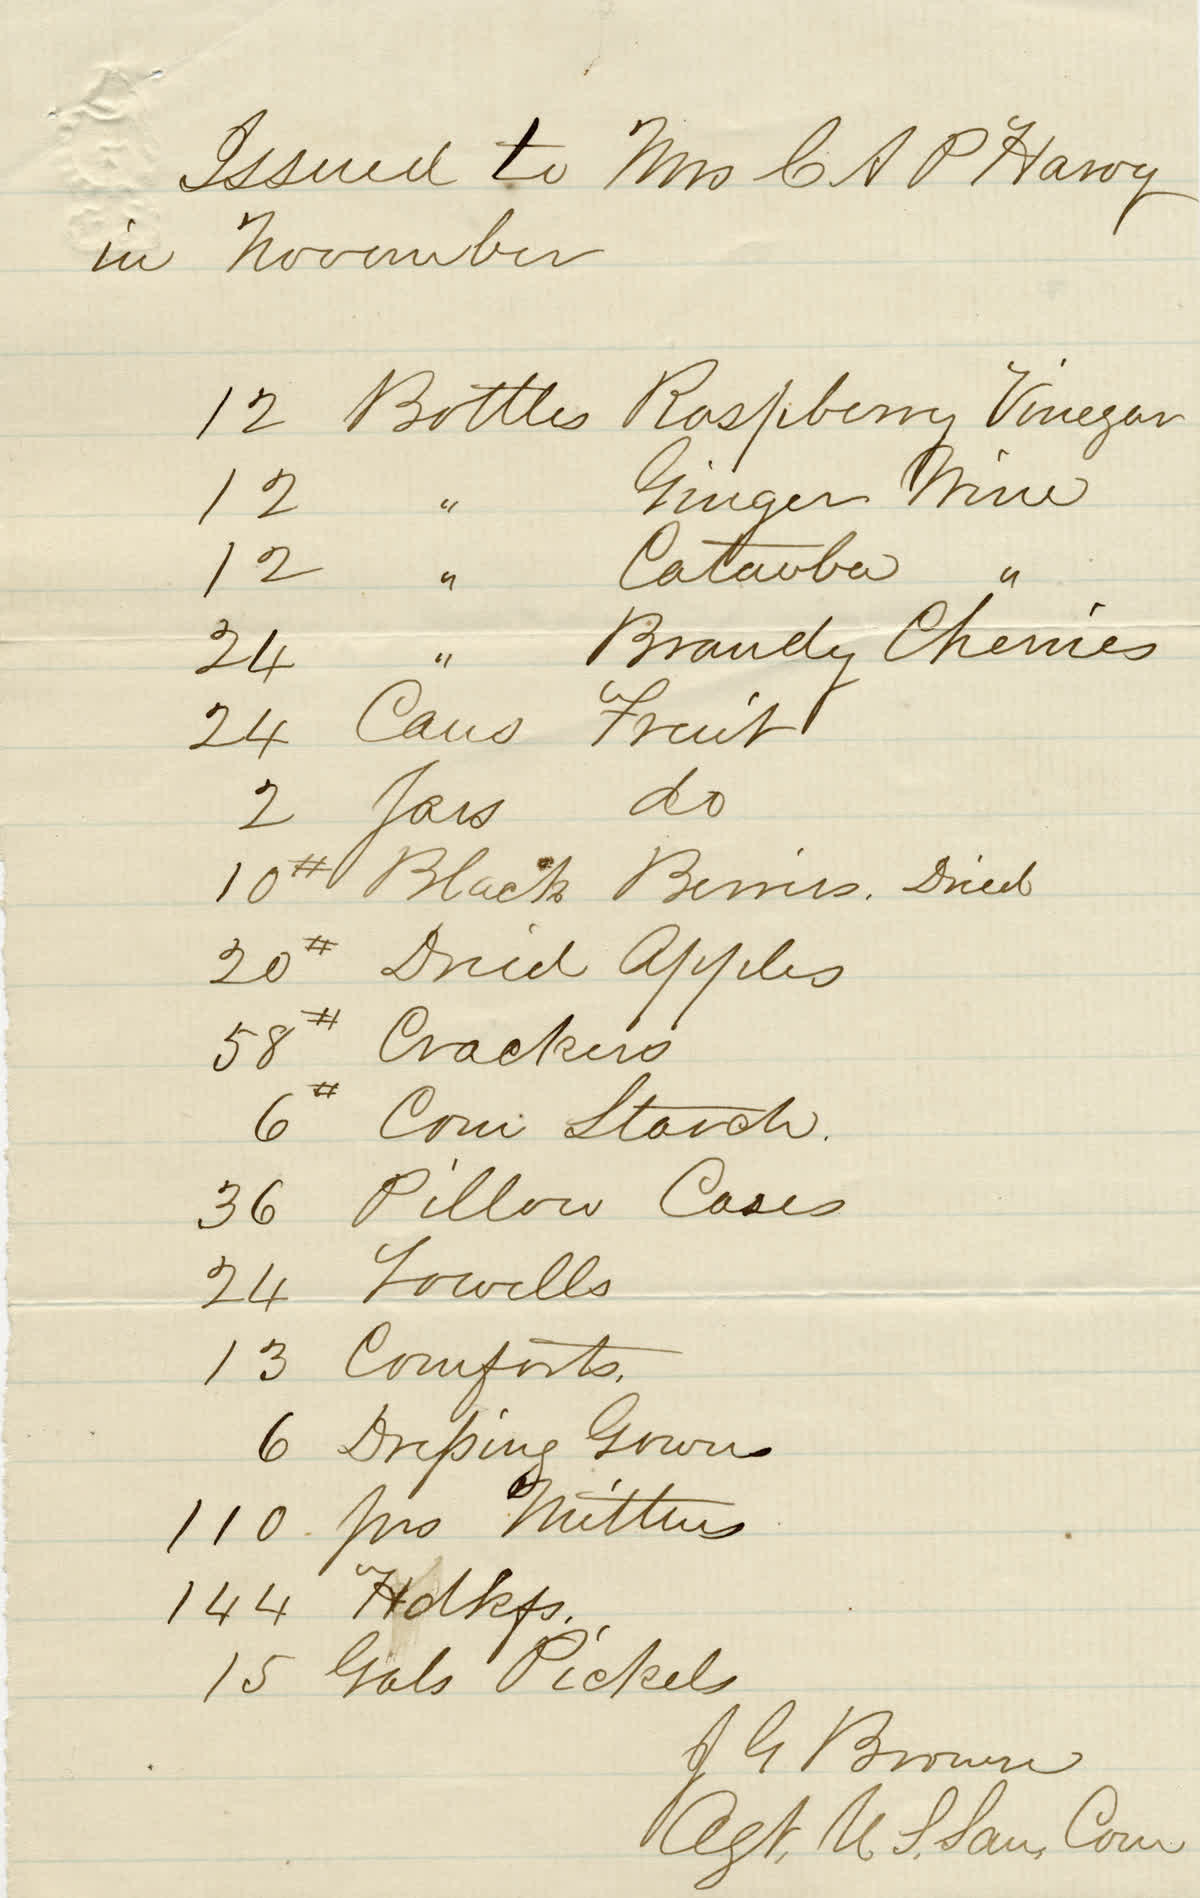 Issued to Mrs C A P Harvy
in November
12 Bottles Raspberry Vinegar
12 " Ginger Wine
12 " Catawba "
24 " Brandy Cherries
24 Cans Fruit
2 Jars do
10# Black Berries. Dried
20# Dried Apples
58# Crackers
6# Corn Starch.
36 Pillow Cases
24 Towells
13 Comforts.
6 Dressing Gowns
110 prs Mittens
144 Hdkfs.
15 Gals Pickels
J G Brown
Agt. U. S. San. Com